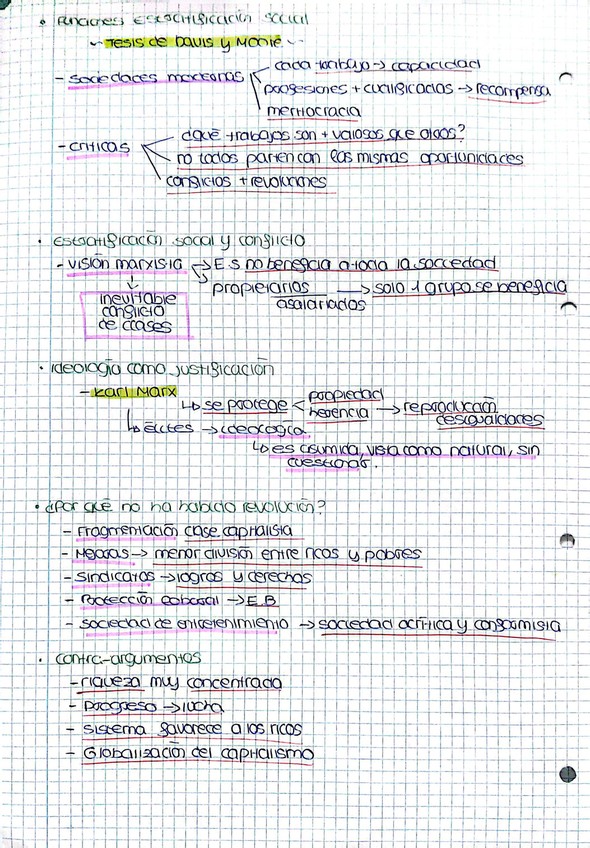 • Funciones Estratificación social
~ Tesis de Davis y Moore ~
- Sociedades modernas
cada trabajo → capacidad
posesiones + cualificadas → recompensa
meritocracia
- críticas
¿qué trabajos son + valiosos que otros?
no todos parten con las mismas oportunidades
conflictos + revoluciones
• Estratificación social y conflicto
- visión marxista → E.S no beneficia a toda la sociedad
↓
inevitable
conflicto
de clases
propietarios
asalariados
→ solo 1 grupo se beneficia
• Ideología como justificación
- Karl Marx
↳ se protege < propiedad
herencia → reproducción
desigualdades
↳ élites → ideología
↳ es asumida, vista como natural, sin
cuestionar.
• ¿Por qué no ha habido revolución?
- Fragmentación clase capitalista
- Mejoras → menor división entre ricos y pobres
- Sindicatos → logros y derechos
- Protección laboral → E.B
- Sociedad de entretenimiento → sociedad acrítica y consumista
• contra-argumentos
- riqueza muy concentrada
- Progreso → lucha
- Sistema favorece a los ricos
- Globalización del capitalismo